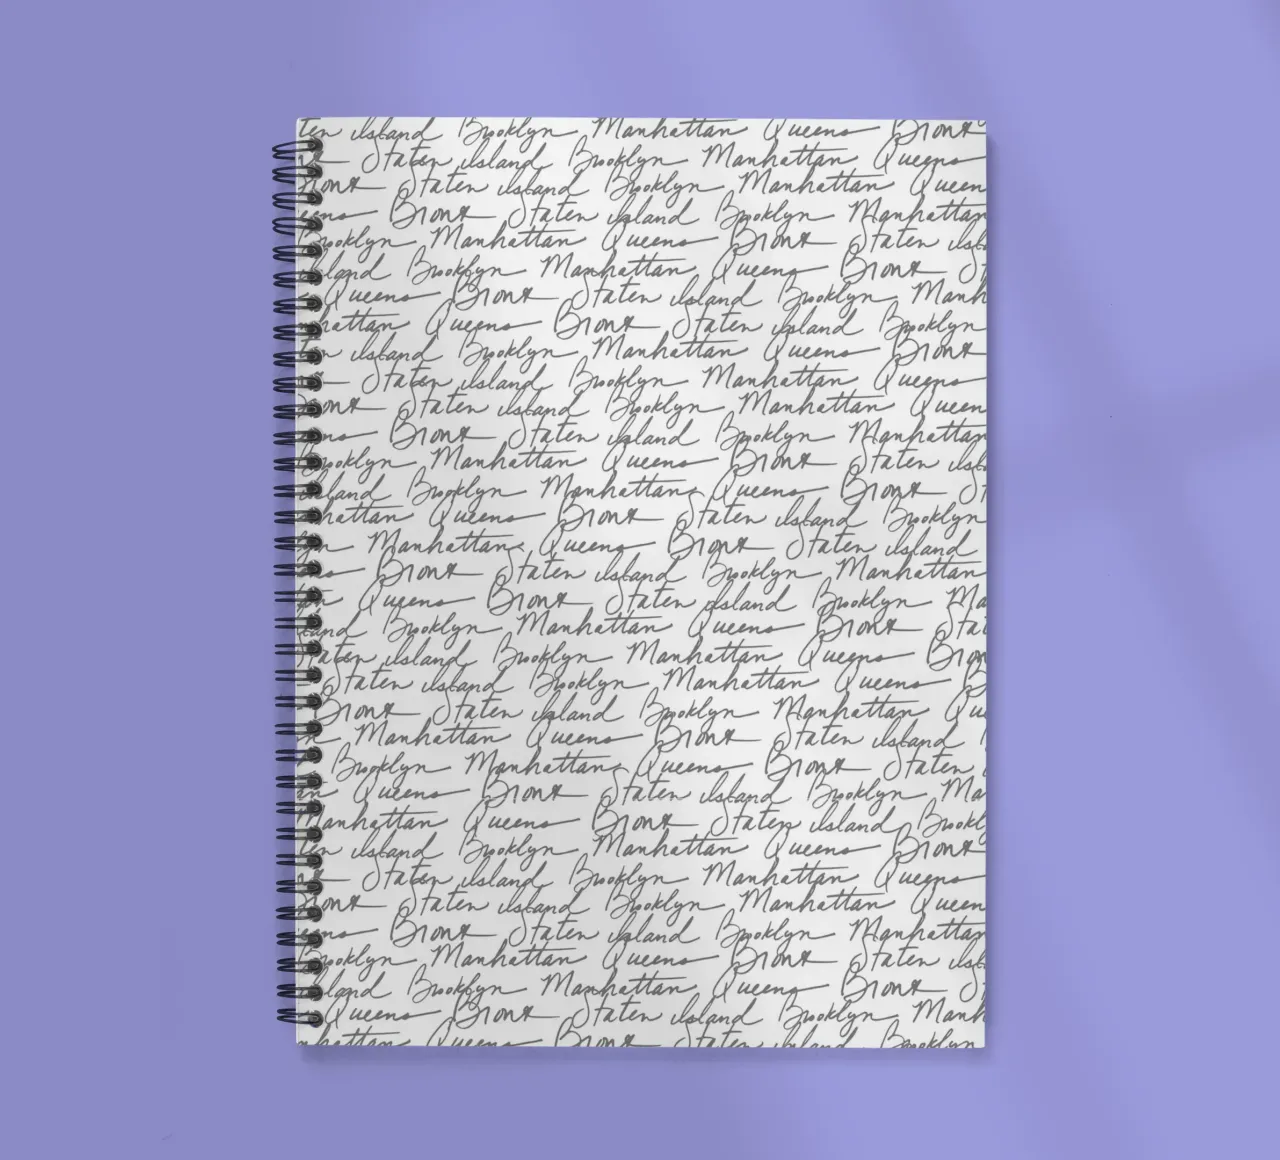 ten Island Brooklyn Manhattan Queens Bronx
Staten Island Brooklyn Manhattan Queens
Bronx Staten Island Brooklyn Manhattan Queen
eens Bronx Staten Island Brooklyn Manhattan
Brooklyn Manhattan Queens Bronx Staten Isl
Island Brooklyn Manhattan Queens Bronx St
Queens Bronx Staten Island Brooklyn Manh
hattan Queens Bronx Staten Island Brooklyn
ten Island Brooklyn Manhattan Queens Bronx
Staten Island Brooklyn Manhattan Queens
Bronx Staten Island Brooklyn Manhattan Queen
eens Bronx Staten Island Brooklyn Manhattan
Brooklyn Manhattan Queens Bronx Staten Isl
Island Brooklyn Manhattan Queens Bronx St
hattan Queens Bronx Staten Island Brooklyn
lyn Manhattan Queens Bronx Staten Island
ns Bronx Staten Island Brooklyn Manhattan
Queens Bronx Staten Island Brooklyn Ma
land Brooklyn Manhattan Queens Bronx Stat
Staten Island Brooklyn Manhattan Queens Bron
Staten Island Brooklyn Manhattan Queens B
Bronx Staten Island Brooklyn Manhattan Qu
n Manhattan Queens Bronx Staten Island
Brooklyn Manhattan Queens Bronx Staten
an Queens Bronx Staten Island Brooklyn Ma
Manhattan Queens Bronx Staten Island Brookl
ten Island Brooklyn Manhattan Queens Bronx
Staten Island Brooklyn Manhattan Queens
Bronx Staten Island Brooklyn Manhattan Queen
eens Bronx Staten Island Brooklyn Manhattan
Brooklyn Manhattan Queens Bronx Staten Isl
Island Brooklyn Manhattan Queens Bronx St
Queens Bronx Staten Island Brooklyn Manh
hattan Queens Bronx Staten Island Brooklyn